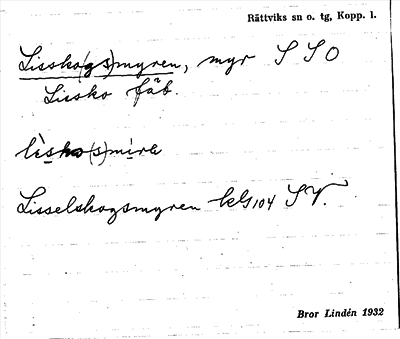 Rättviks sn o. tg, Kopp. l.
Lissko(gs)myren, myr S S O
Lissko fäb.
lèsko(s)mìrɐ
Lisselskogsmyren kG104 SV.
Bror Lindén 1932